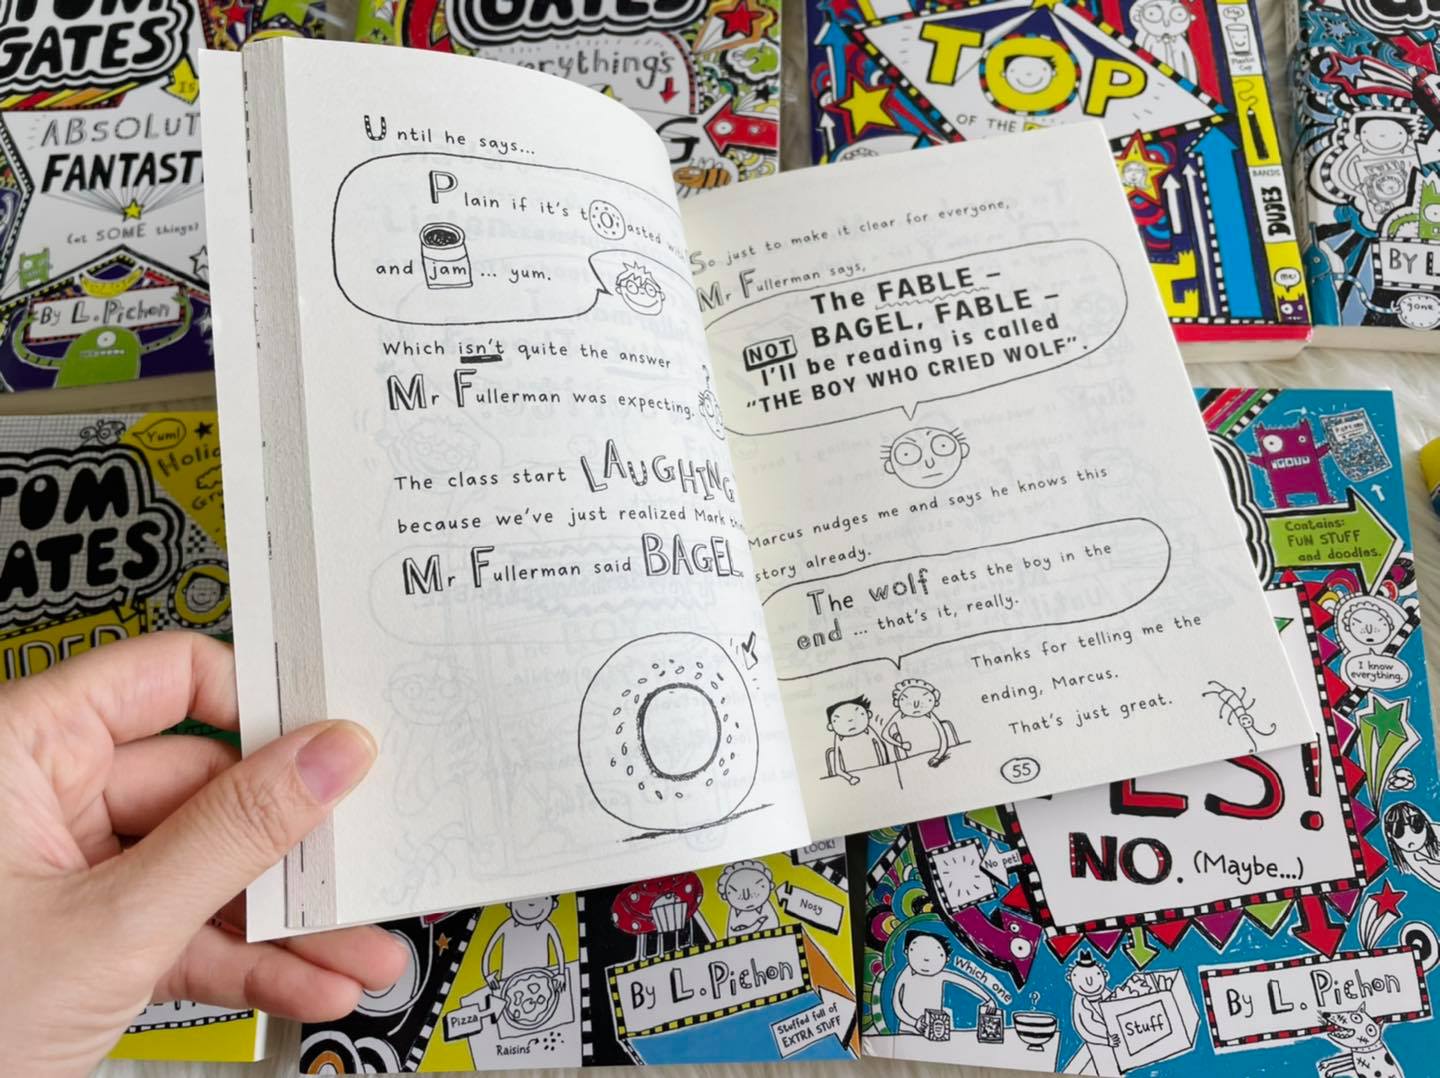 Until he says...
Plain if it's toasted with
and jam ... yum.
Which isn't quite the answer
Mr Fullerman was expecting.
The class start LAUGHING
because we've just realized Mark
Mr Fullerman said BAGEL
So just to make it clear for everyone,
Mr Fullerman says,
The FABLE –
NOT BAGEL, FABLE –
I'll be reading is called
"THE BOY WHO CRIED WOLF".
Marcus nudges me and says he knows this
story already.
The wolf eats the boy in the
end ... that's it, really.
Thanks for telling me the
ending, Marcus.
That's just great.
55
TOM
GATES
IS
ABSOLUT
FANTAST
(at SOME things)
By L. Pichon
GATES
Everything's
TOP
OF THE
Plastic
Cup
BANDS
DUDE3
me!
By L
gone
Yum!
TOM
GATES
Holid
By L. Pichon
Pizza
Raisins
LOOK!
Nosy
Stuffed full of
EXTRA STUFF
Contains:
FUN STUFF
and doodles.
I know
everything.
YES!
NO. (Maybe...)
No pet!
Which one
?
Stuff
By L. Pichon